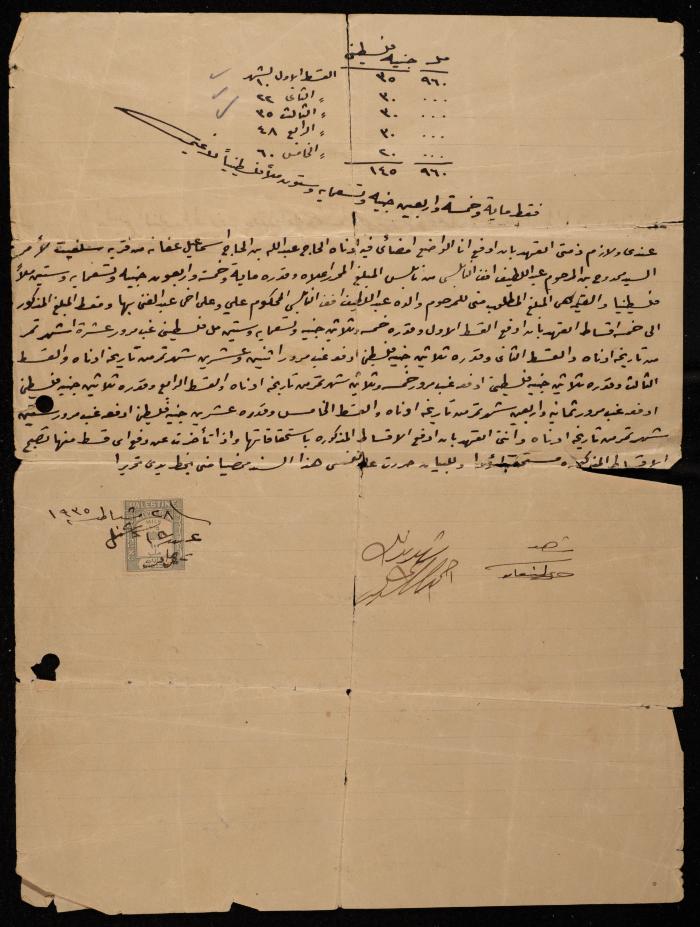 مل جنيه فلسطيني
٩٦٠ ٣٥ القسط الاول لشهر ١٠
... ٣٠ " الثاني ٢٢
... ٣٠ " الثالث ٣٥
... ٣٠ " الرابع ٤٨
... ٢٠ " الخامس ٦٠
٩٦٠ ١٤٥
فقط ماية وخمسة واربعين جنيه وتسعمايه وستون ملاً فلسطينياً لا غير
عندي ولازم ذمتي التعهد بان ادفع انا الواضع امضائي فيه ادناه الحاج عبدالله بن الحاج اسماعيل عفانه من قرية سلفيت لأمر
السيد ممدوح بن المرحوم عبد اللطيف افندي من نابلس المبلغ المحرر اعلاه وقدره ماية وخمسة واربعون جنيه وتسعمايه وستين ملاً
فلسطينيا والقيمة هي المبلغ المطلوب مني للمرحوم والده عبد اللطيف افندي المحكوم علي وعلى اخي عبد الغني بها وقسط المبلغ المذكور
الى خمس اقساط اتعهد بان ادفع القسط الاول وقدره خمسه وثلاثين جنيه وتسعمايه وستين مل فلسطيني غب مرور عشرة اشهر تمر
من تاريخه ادناه والقسط الثاني وقدره ثلاثين جنيه فلسطيني ادفعه غب مرور اثنين وعشرين شهر تمر من تاريخه ادناه والقسط
الثالث وقدره ثلاثين جنيه فلسطيني ادفعه غب مرور خمسه وثلاثين شهر تمر من تاريخه ادناه والقسط الرابع وقدره ثلاثين جنيه فلسطيني
ادفعه غب مرور ثمانيه واربعين شهر تمر من تاريخه ادناه والقسط الخامس وقدره عشرين جنيه فلسطيني ادفعه غب مرور ستين
شهر تمر من تاريخه ادناه وانني اتعهد بان ادفع الاقساط المذكوره باستحقاقاتها واذا تأخرت عن دفع اي قسط منها تصبح
الاقساط المذكوره مستحقة وللبيان حررت على نفسي هذا السند ممضيا مني بخط يدي تحريرا
٢٨ شباط ١٩٣٥
PALESTINE
شهد
شهد بذلك